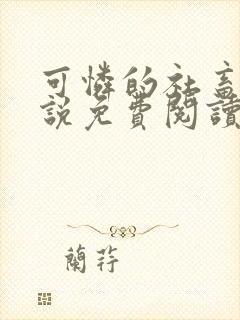 可憐的社畜
說免費閱讀
蘭荇